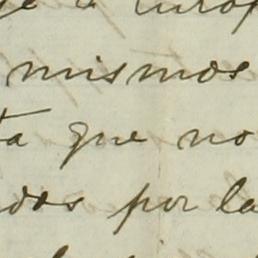 a Europ
mismos
ta que no
dos por la